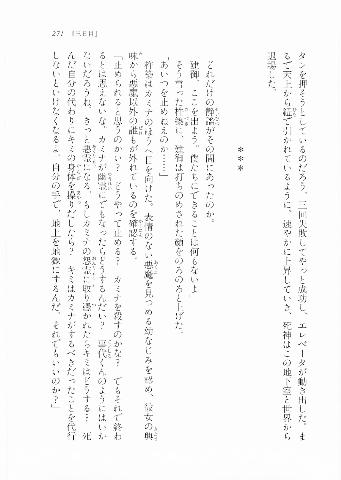 271 [三日目]
タンを押そうとしているのだろう。三回失敗してやっと成功し、エレベータが動き出した。ま
るで天上から紐で引かれているように、速やかに上昇していき、死神はこの地下室と世界から
退場した。
＊＊＊
どれだけの静寂がその間にあったのか。
「建御、ここを出よう。僕たちにできることは何もないよ」
そう言った祥徳に、建御は打ちのめされた顔をのろのろと上げた。
「あいつを止めねえのか……」
祥徳はカミナのほうへ目を向けた。表情のない悪魔を見つめる幼なじみを認め、彼女の興
味から悪魔以外の誰もが外れているのを確認する。
「止められると思うのかい？　どうやって止める？　カミナを殺すのかな？　でもそれで終わ
るとは思えないな。カミナが幽霊にでもなったらどうするんだい？　亜代くんのようにはいか
ないだろうね。きっと悪霊になる。もしカミナの怨霊に取り憑かれたらキミはどうする？　死
んだ自分の代わりにキミの身体を操りだしたら？　キミはカミナがするべきだったことを代行
しないといけなくなるよ。自分の手で、地上を地獄にするんだ。それでもいいのか？」